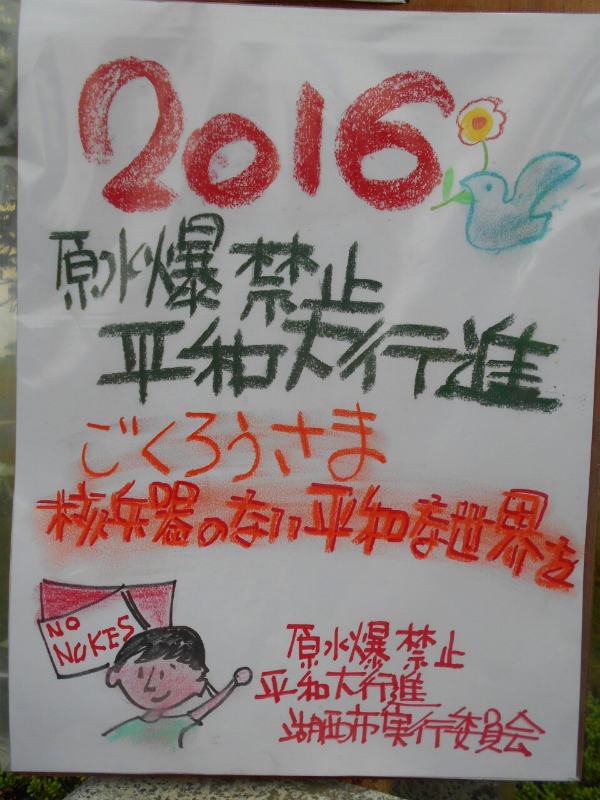 2016
原水爆禁止
平和大行進
ごくろうさま
核兵器のない平和な世界を
NO
NUKES
原水爆禁止
平和大行進
湖西市実行委員会